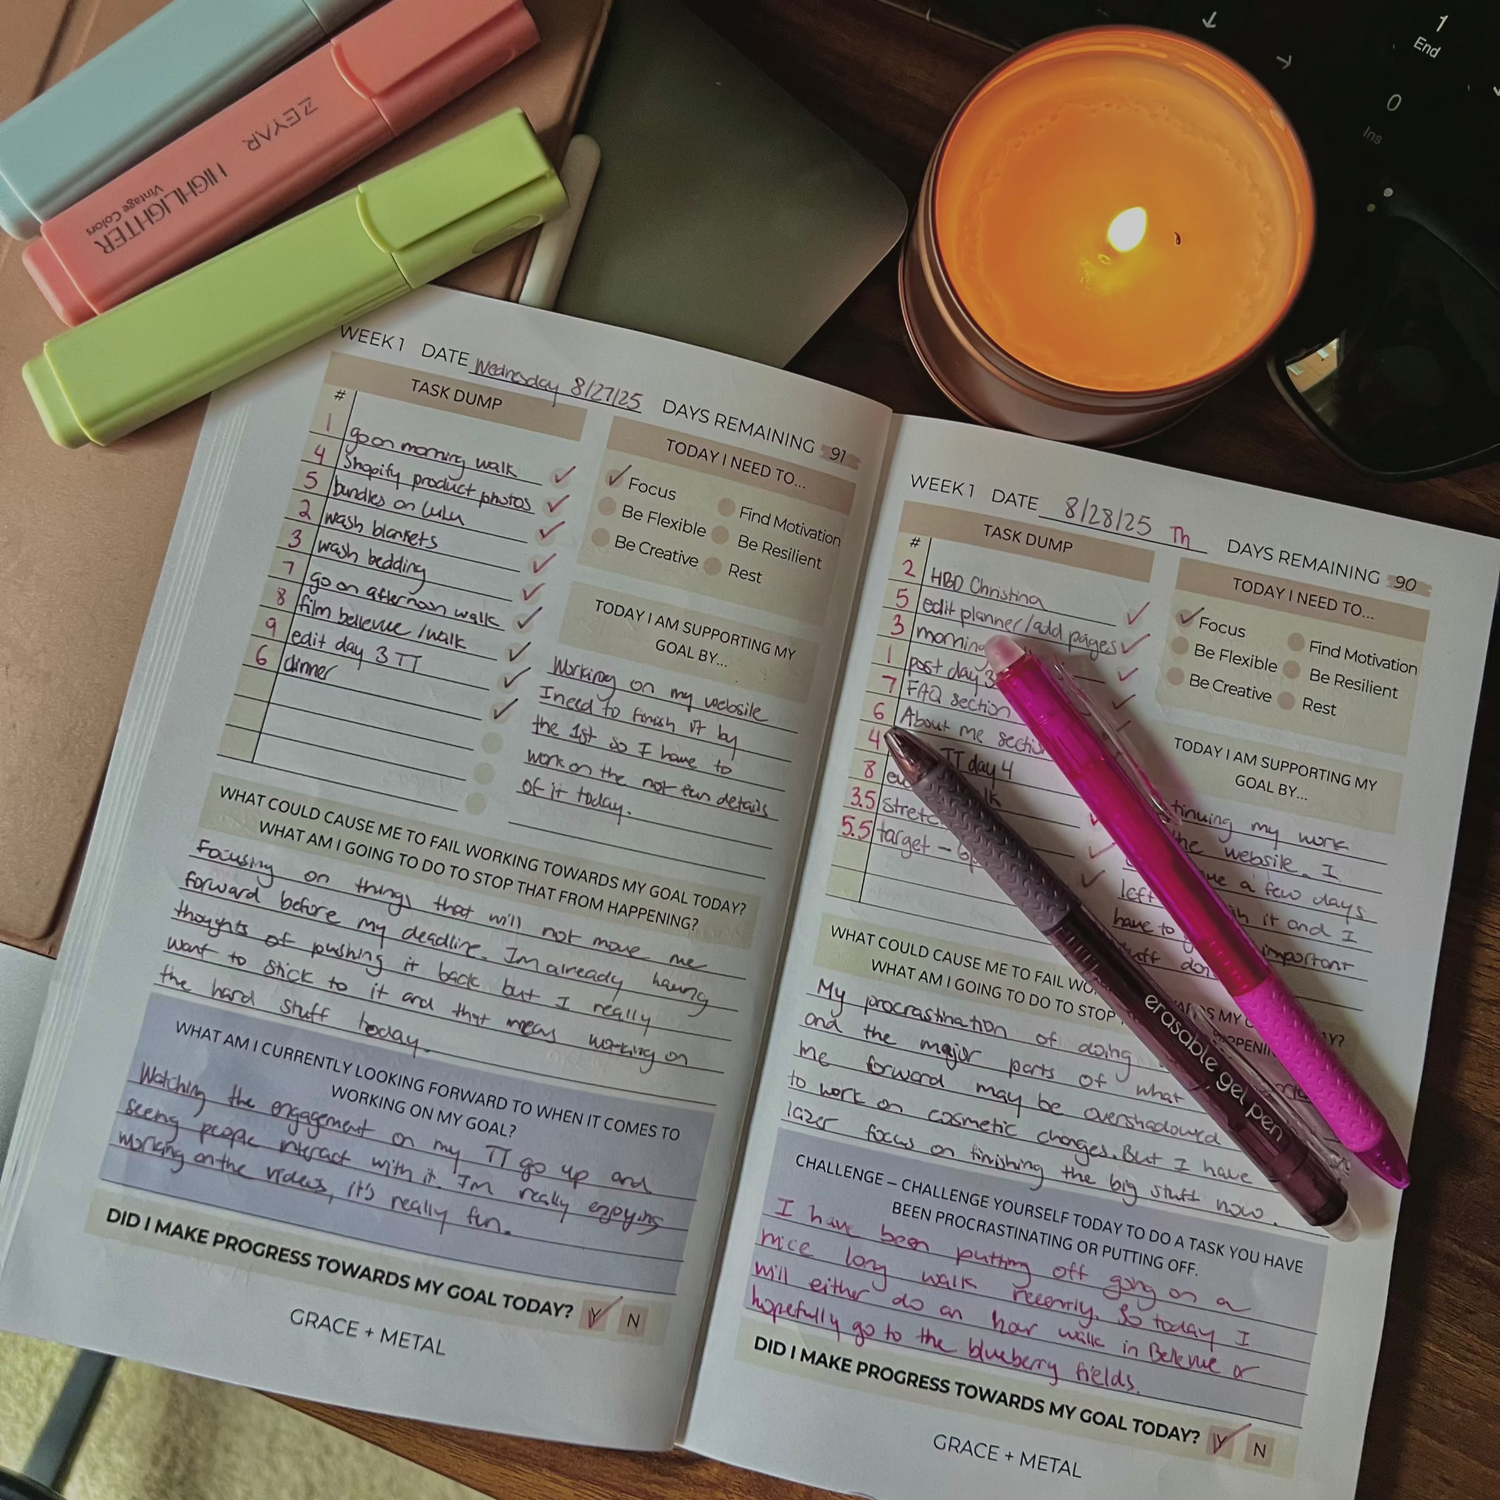 ZEYAR.
HIGHLIGHTER
Vintage Colors
1
End
0
Ins
WEEK 1 DATE Wednesday 8/27/25 DAYS REMAINING 91
TASK DUMP
#
1 go on morning walk
4 Shopify product photos
5 bundles on Lulu
2 wash blankets
3 wash bedding
7 go on afternoon walk
8 film bellevue /walk
9 edit day 3 TT
6 dinner
TODAY I NEED TO...
Focus
Find Motivation
Be Flexible
Be Resilient
Be Creative
Rest
TODAY I AM SUPPORTING MY
GOAL BY...
Working on my website
I need to finish it by
the 1st so I have to
work on the not fun details
of it today.
WHAT COULD CAUSE ME TO FAIL WORKING TOWARDS MY GOAL TODAY?
WHAT AM I GOING TO DO TO STOP THAT FROM HAPPENING?
Focusing on things that will not move me
forward before my deadline. Im already having
thoughts of pushing it back but I really
want to stick to it and that means working on
the hard stuff today.
WHAT AM I CURRENTLY LOOKING FORWARD TO WHEN IT COMES TO
WORKING ON MY GOAL?
Watching the engagement on my TT go up and
seeing people interact with it. Im really enjoying
working on the videos, it's really fun.
DID I MAKE PROGRESS TOWARDS MY GOAL TODAY? Y N
GRACE + METAL
WEEK 1 DATE 8/28/25 Th DAYS REMAINING 90
TASK DUMP
#
2 HBD Christina
5 edit planner/add pages
3 morning
1 post day 3
7 FAQ section
6 About me section
4 TT day 4
8
3.5 stretc
5.5 target -
TODAY I NEED TO...
Focus
Find Motivation
Be Flexible
Be Resilient
Be Creative
Rest
TODAY I AM SUPPORTING MY
GOAL BY...
tinuing my work
the website. I
a few days
left it and I
have to important
stuff don
WHAT COULD CAUSE ME TO FAIL WO MY
WHAT AM I GOING TO DO TO STOP
My procrastination of doing
and the major parts of what
me forward may be overshadowed
to work on cosmetic changes. But I have
lazer focus on finishing the big stuff now.
erasable gel pen
CHALLENGE – CHALLENGE YOURSELF TODAY TO DO A TASK YOU HAVE
BEEN PROCRASTINATING OR PUTTING OFF.
I have been putting off going on a
nice long walk recently. So today I
will either do an hour walk in Bellevue or
hopefully go to the blueberry fields.
DID I MAKE PROGRESS TOWARDS MY GOAL TODAY? Y N
GRACE + METAL